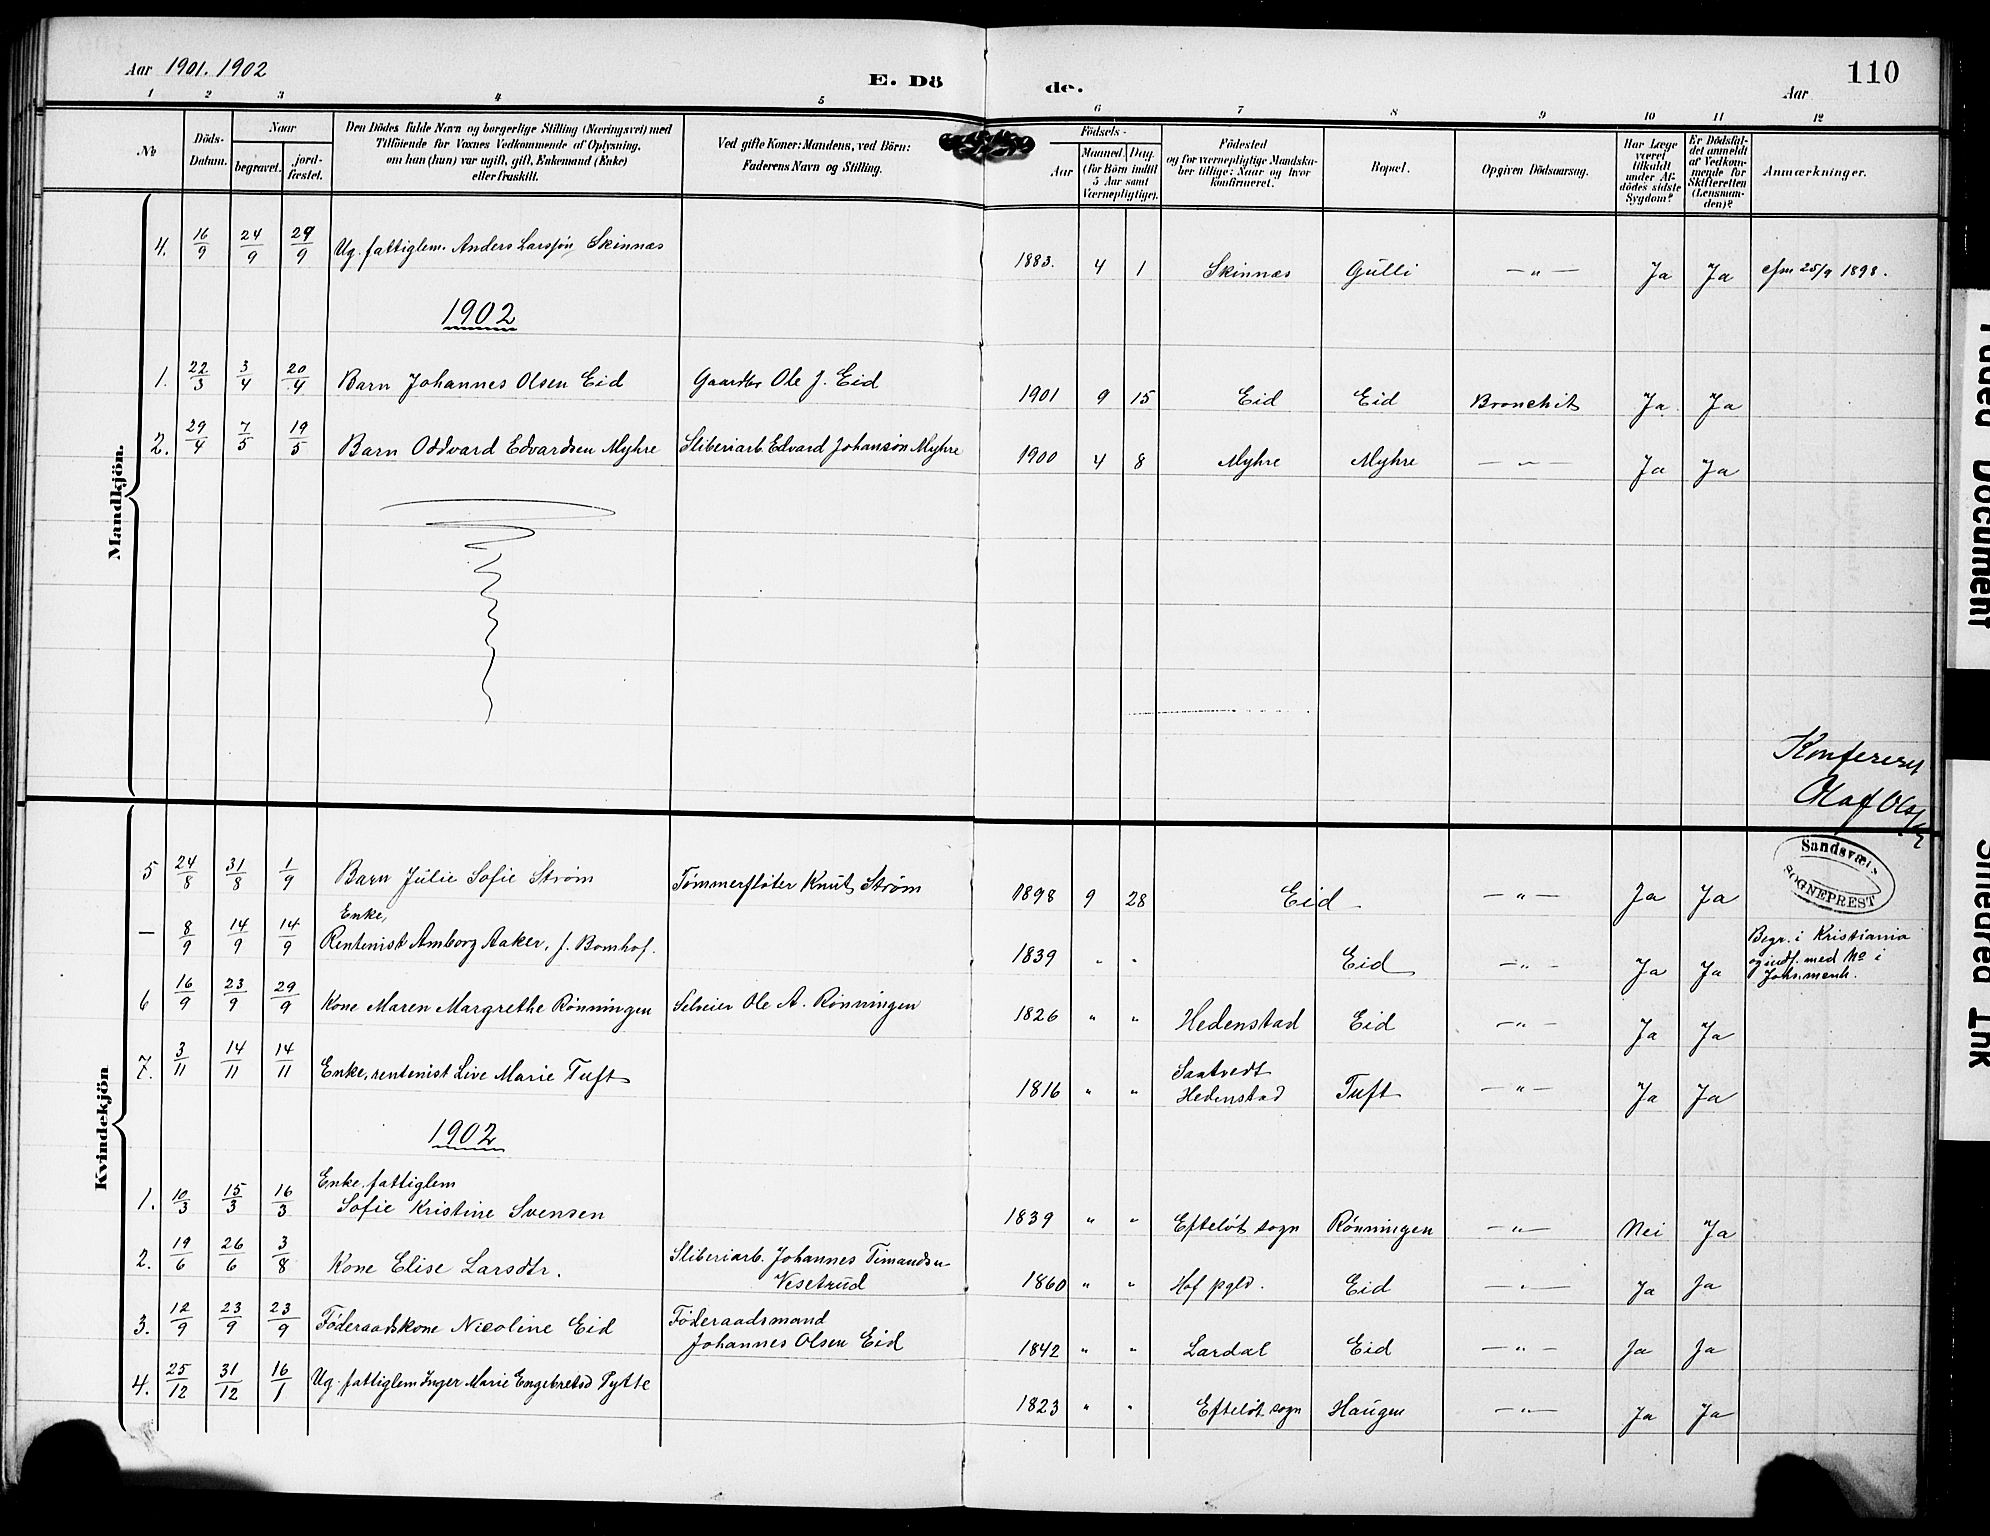 Aar 1901. 1902
E. Dö de.
Aar
110
1 2 3 4 5 6 7 8 9 10 11 12
No
Döds-Datum.
Naar
begravet.
jord-fæstet.
Den Dödes fulde Navn og borgerlige Stilling (Næringsvei) med
Tilföiende for Voxnes Vedkommende af Oplysning,
om han (hun) var ugift, gift, Enkemand (Enke)
eller fraskilt.
Ved gifte Koner: Mandens, ved Börn:
Faderens Navn og Stilling.
Födsels-
Aar
Maaned. Dag.
(for Börn indtil
5 Aar samt
Værnepligtige).
Födested
og for værnepligtige Mandska-
ber tillige: Naar og hvor
konfirmeret.
Bopæl.
Opgiven Dödsaarsag.
Har Læge
været
tilkaldt
under Af-
dödes sidste
Sygdom?
Er Dödsfal-
det anmeldt
af Vedkom-
mende for
Skifteretten
(Lensman-
den)?
Anmærkninger.
Mandkjön.
4. 16/9 24/9 29/9 Ug. fattiglem. Anders Larssøn Skinnæs 1883. 4 1 Skinnæs Gulli — " — Ja Ja cfm 25/9 1898.
1902
1. 22/3 3/4 20/4 Barn Johannes Olsen Eid Gaardbr Ole J. Eid 1901 9 15 Eid Eid Bronchit Ja Ja
2. 29/4 7/5 19/5 Barn Oddvard Edvardsen Myhre Sliberiarb. Edvard Johanson Myhre 1900 4 8 Myhre Myhre — " — Ja Ja
Konfereret
Olaf Olsen
Sandsvær
SOGNEPREST
Kvindekjön
5 24/8 31/8 1/9 Barn Julie Sofie Strøm Tømmerfløter Knut Strøm 1898 9 28 Eid — " — Ja Ja
— 8/9 14/9 14/9 Enke,
Rentenist Amborg Aaker, f. Bomhof. 1839 " " Eid — " — Ja Ja Begr. i Kristiania
og indf. med No i
Johs.menh.
6 16/9 23/9 29/9 Kone Maren Margrethe Rønningen Selveier Ole A. Rønningen 1826 " " Hedenstad Eid — " — Ja Ja
7. 3/11 14/11 14/11 Enke, rentenist Live Marie Tuft 1816 " " Saatvedt
Hedenstad Tuft — " — Ja Ja
1902
1. 10/3 15/3 16/3 Enke, fattiglem
Sofie Kristine Svensen 1839 " " Efteløt sogn Rønningen — " — Nei Ja
2. 19/6 26/6 3/8 Kone Elise Larsdtr. Sliberiarb. Johannes Timandsen
Vesetrud 1860 " " Hof pgld. Eid — " — Ja Ja
3. 12/9 23/9 23/9 Føderaadskone Nicoline Eid Føderaadsmand
Johannes Olsen Eid 1842 " " Lardal Eid — " — Ja Ja
4. 25/12 31/12 16/1 Ug. fattiglem Inger Marie Engebretsd Tytte 1823 " " Efteløt sogn Haugen — " — Ja Ja
Faded Document
Smeared Ink